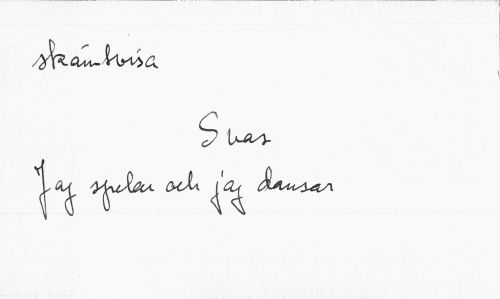 skämtvisa
Svar
Jag spelar och jag dansar